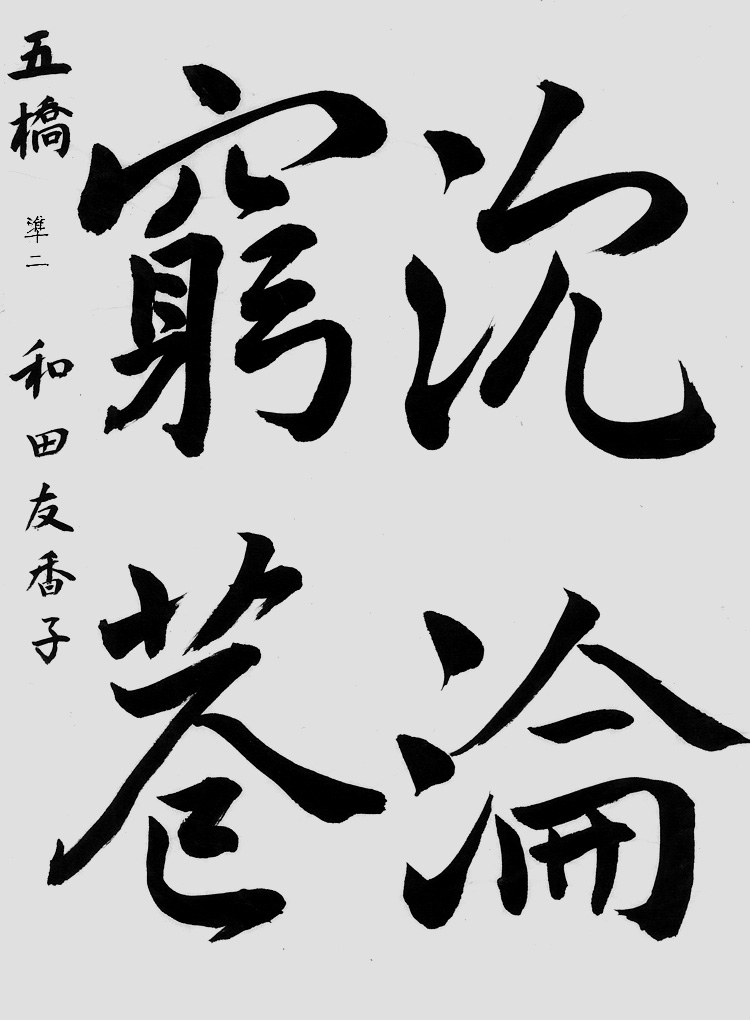 沈淪
窮巷
五橋 準二 和田友香子